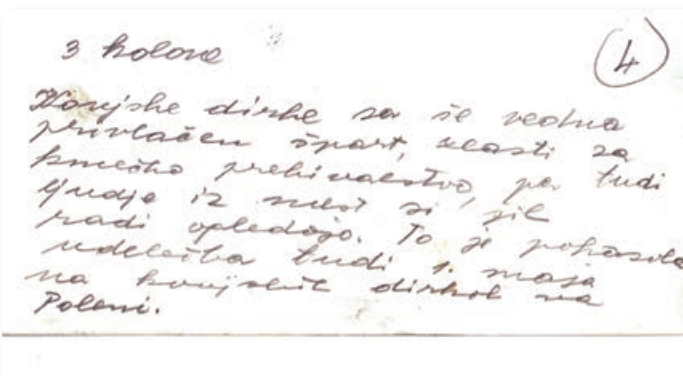 3 kolone
4
Konjske dirke so še vedno
privlačen šport, zlasti za
kmečko prebivalstvo, pa tudi
ljudje iz mest si jih
radi ogledajo. To je pokazala
udeležba tudi 1. maja
na konjskih dirkah na
Poleni.